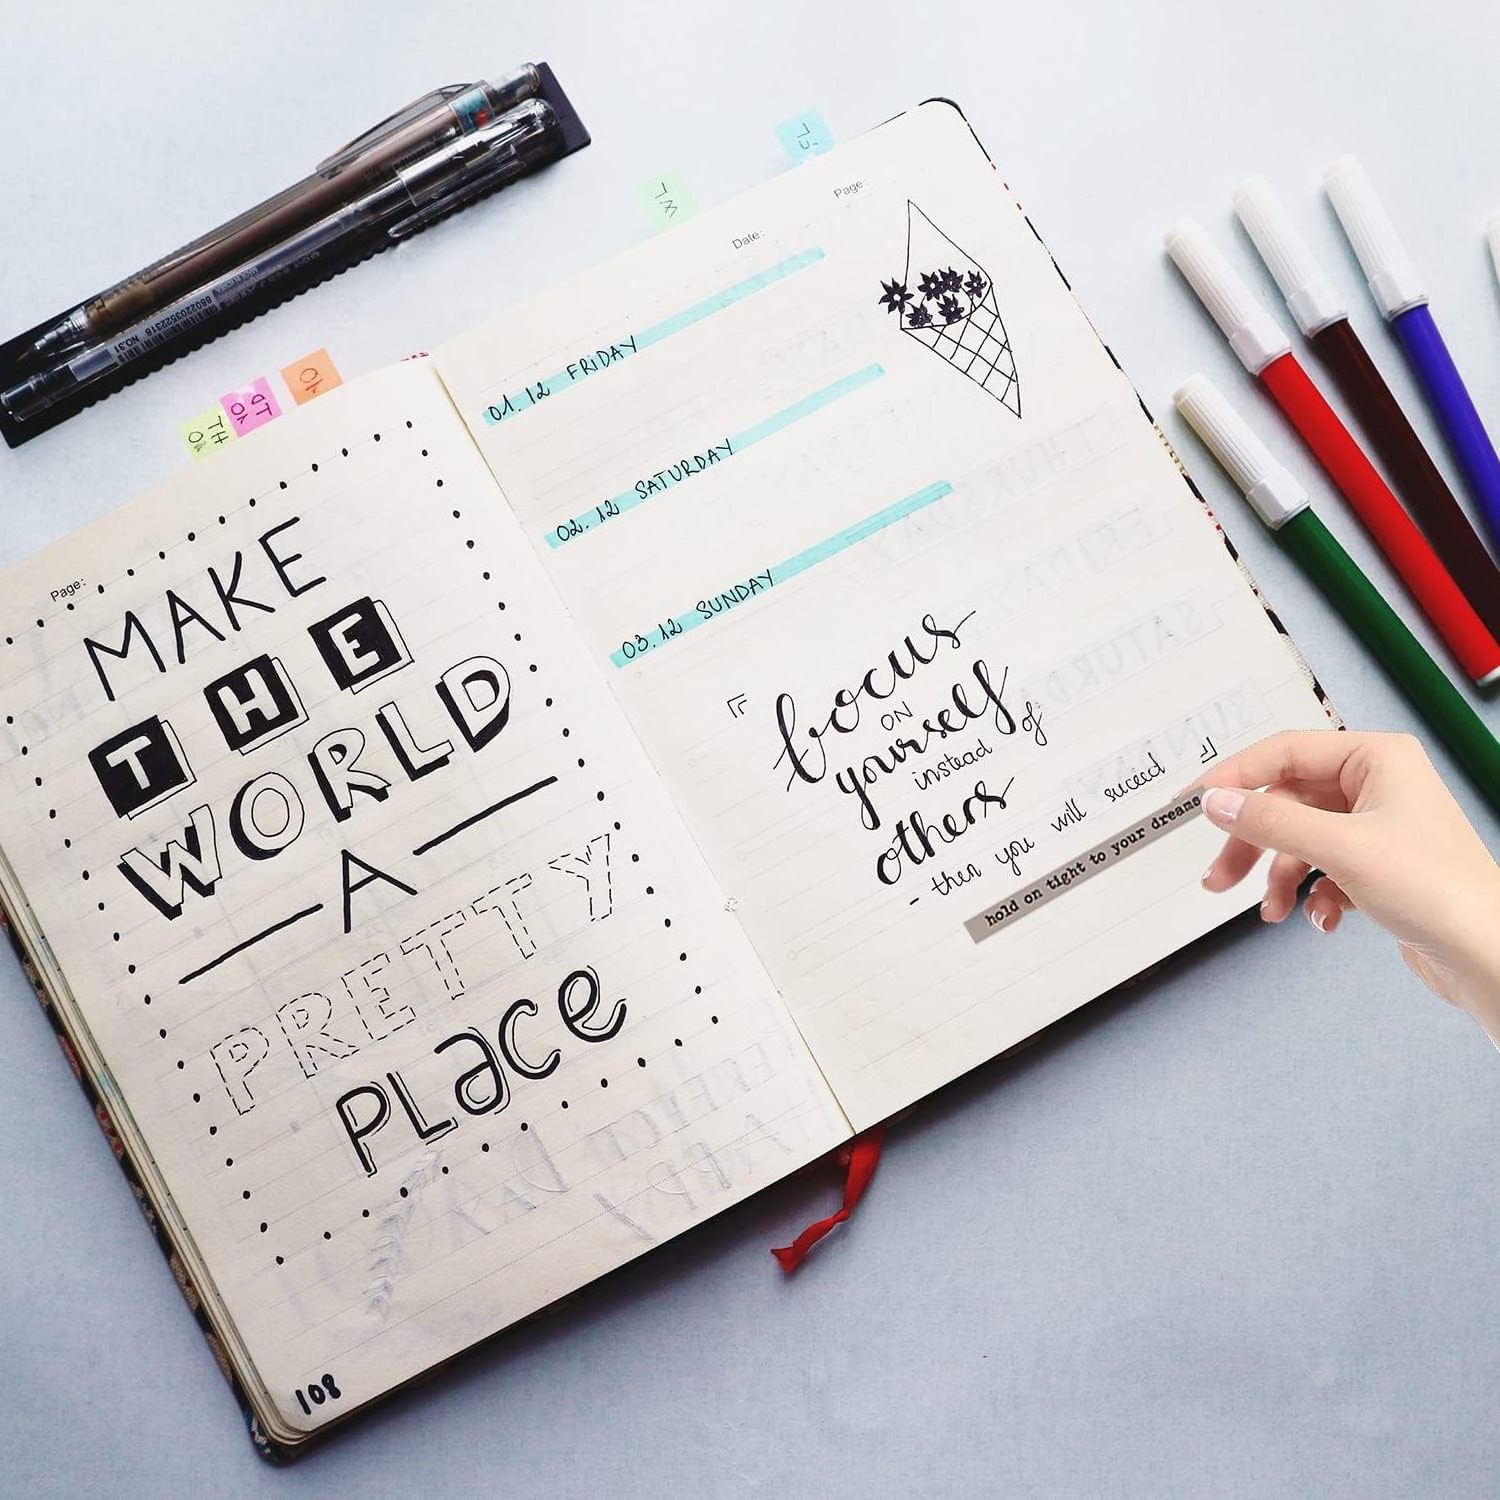 Page:
MAKE
THE
WORLD
A
PRETTY
PLace
108
Date:
Page
01.12 FRiDAY
02.12 SATURDAY
03.12 SUNDAY
focus
ON
yourself
instead of
others
- then you will suceed
hold on tight to your dreams
NO.31
8802203522316